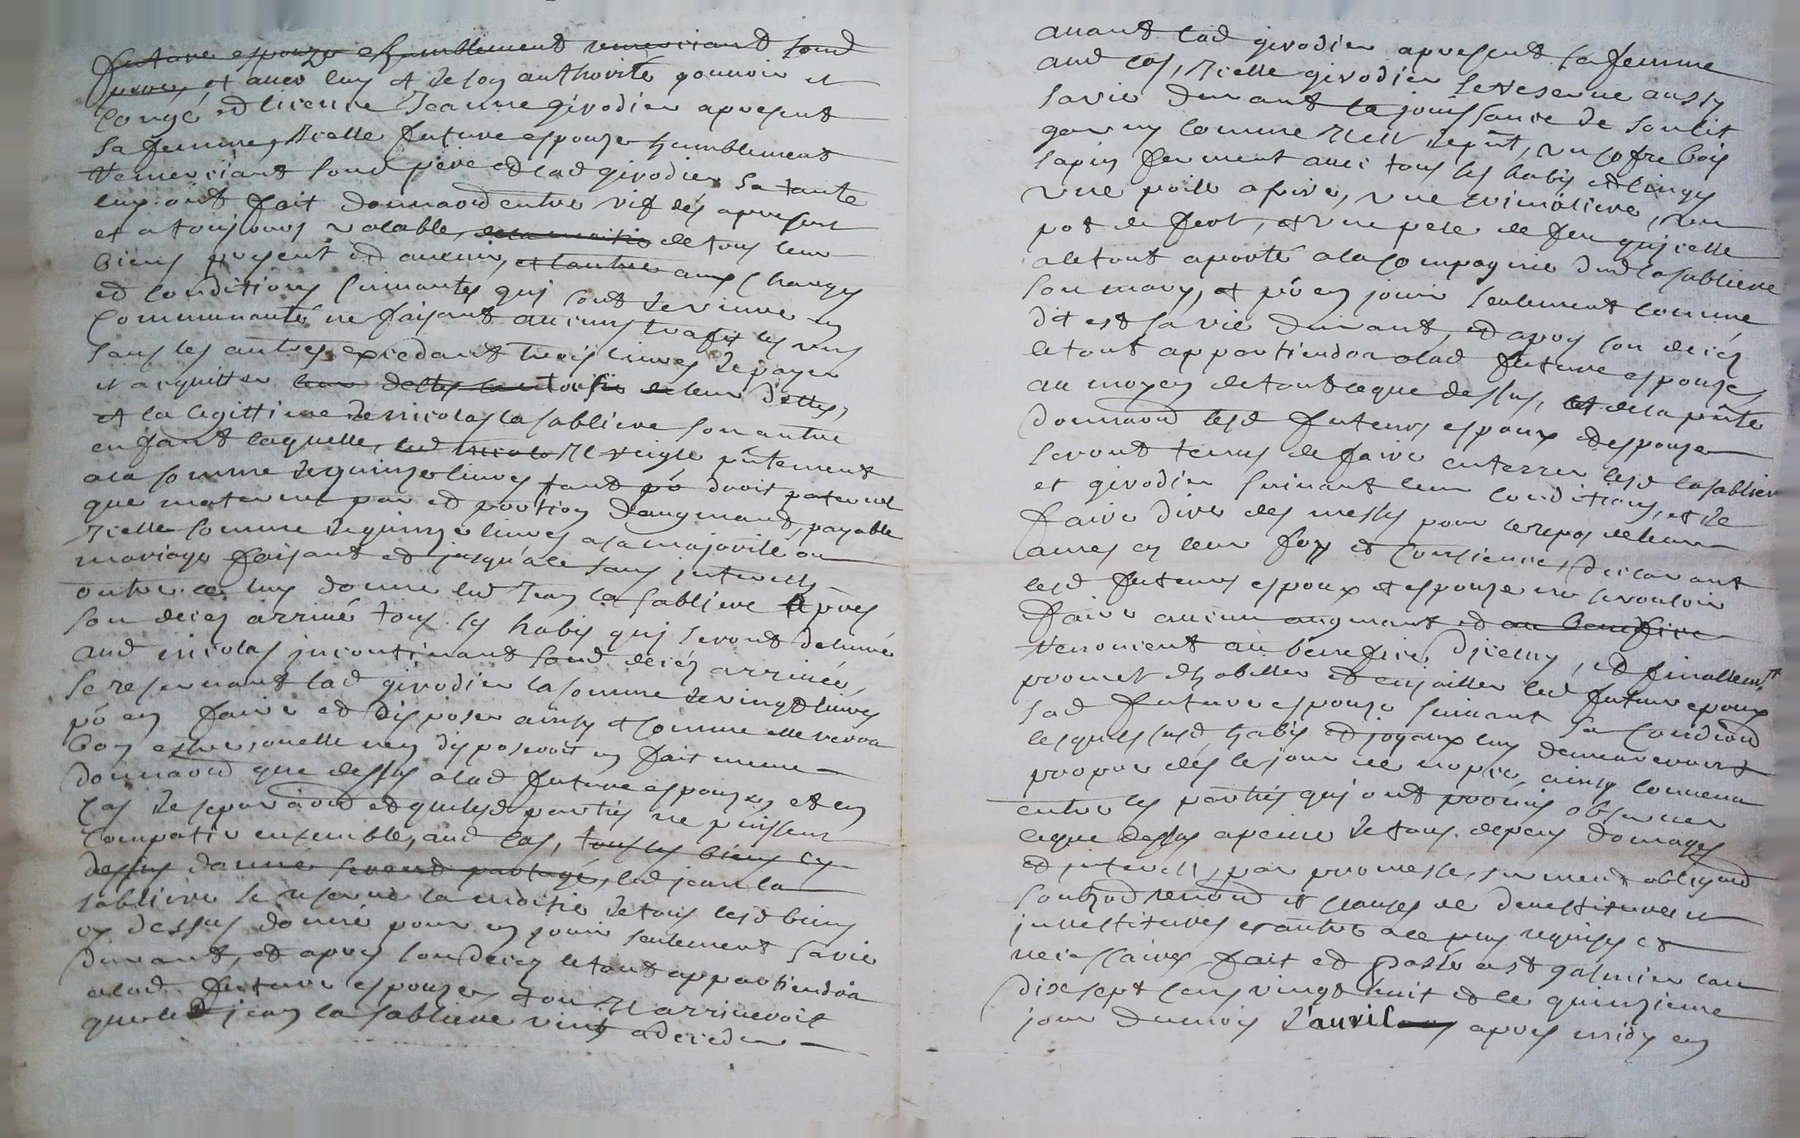 future espouze et humblement remerciant sond
pere, et avec luy et de son authorité pouvoir et
congé et licence Jeanne girodier apresent
sa femme, Icelle future espouze humblement
remerciant sond pere et lad girodier sa tante
luy ont fait donnaond entre vif des apresent
et a tousjours valable, de la moitié de tous leur
biens present et avenir, et lautre aux charges
et conditions suivantes qui sont de vivre en
communauté ne faisant aucuns trafit les uns
sans les autres excedant trois livres de payer
et acquitter leur dettes de leur dettes,
et la legittime de nicolas la sabliere son autre
enfant laquelle, led nicolas Il reigle pntement
a la somme de quinze livres tant pr droit paternel
que maternel part et portion daugmand, payable
Icelle somme de quinze livres a sa majorité ou
mariage faisant et jusqu'a ce sans interests
outre ce luy donne led Jean la sabliere apres
son deces arrivé tous les habis qui seront delivré
aud nicolas incontinant sond deces arrivée,
se reservant lad girodier la somme de vingt livres
pr en faire et disposer ainsy et comme elle verra
bon estre, ou elle nen disposeroit en fait meme
donnaond que dessus a lad future espouze, et en
cas de separaond et que lesd partis ne puissent
compatir enxemble, aud cas, tous les biens cy
dessus donnes seront partagé, led jean la
sabliere se reserve la moitié de tous lesd biens
cy dessus donné pour en jouir seulement sa vie
durant, et apres son deces le tout appartiendra
a lad future espouze, et ou Il arriveroit
que led jean la sabliere vint a deceder
avant lad girodier apresent sa femme
aud cas, Icelle girodier se reserve aussy
sa vie durant la jouissance de son lit
garny comme Il est a pnt, un cofre bois
sapin fermant avec tous les habis et linges
une poille a frire, une crimoliere, un
pot de fert, et une pele de feu qu'icelle
a le tout aporté a la compagnie dud la sabliere
son mary, et pr en jouir seulement comme
dit est sa vie durant, et apres son deces
le tout appartiendra a lad future espouze,
au moyen de tout ce que dessus, et de la pnte
donnaond lesd futeurs espoux et espouze
seront tenus de faire enterrer lesd la sabliere
et girodier suivant leur conditions, et de
faire dire des messes pour le repos de leur
ames en leur foy et consience, declarant
lesd futeurs espoux et espouze ne se vouloir
faire aucun augmant et au benefice
renoncent au benefice d'icelluy, et finallemt
promet d'habiller et enjoailler led futur epoux
sad future espouze suivant sa condiond
lesquels susd habis et joyaux luy demeureront
propres dés le jour de nopce, ainsy convenu
entre les parties qui ont promis observer
ce que dessus a peine de tous depens domages
et interests, par promesse, serment obligaond
soubzd renond et clauses de devestitures et
investitures et autres a ce plus requises et
necessaires, fait et passé a st galmier lan
dix sept cens vingt huit et le quinzieme
jour du mois d'avril apres midy en